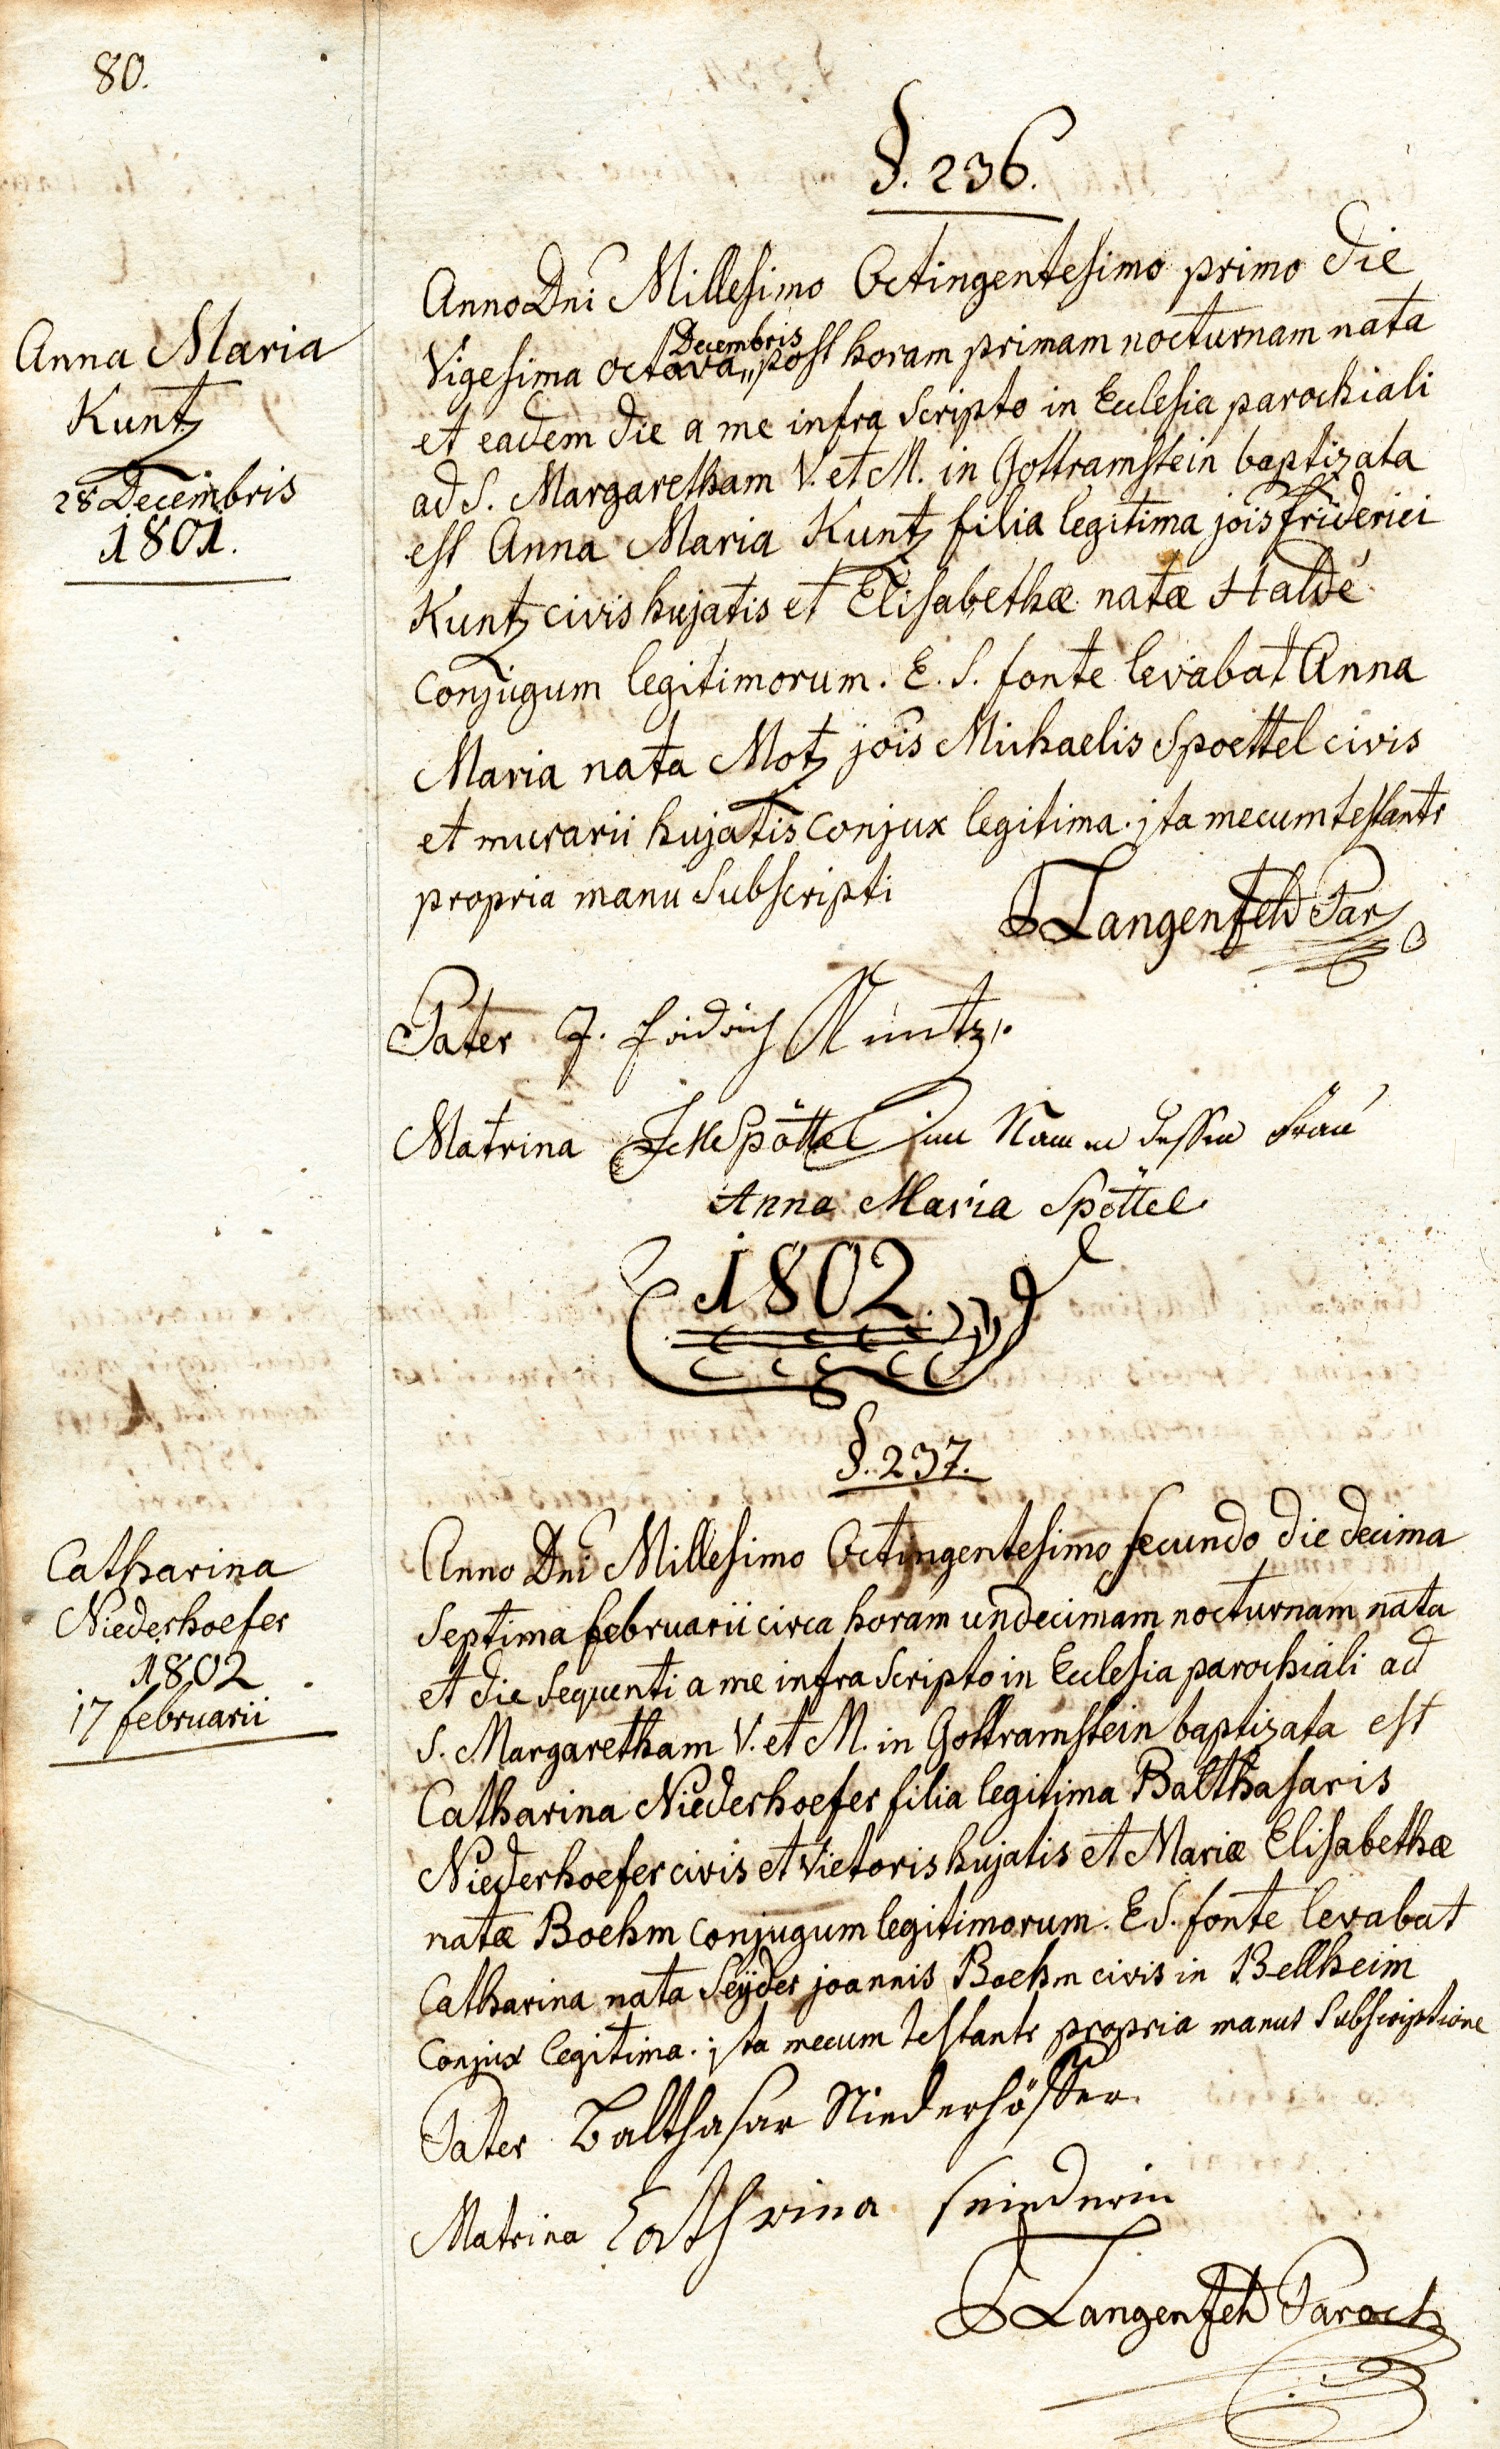 80.
§. 236.
Anna Maria
Kuntz
28 Decembris
1801.
Anno Dni Millesimo Octingentesimo primo die
Decembris
Vigesima octava „ post horam primam nocturnam nata
et eadem die a me infra scripto in Ecclesia parochiali
ad S. Margaretham V. et M. in Gottramstein baptizata
est Anna Maria Kuntz filia legitima jois friderici
Kuntz civis hujatis et Elisabethæ natæ Haldé
conjugum legitimorum. E. S. fonte levabat Anna
Maria nata Motz jois Michaelis Spoettel civis
et murarii hujatis conjux legitima. jta mecum testantr
propria manu subscripti
Langenfeld Par
Pater J. fridrich Kuntz.
Matrina Spöttel im Namen dessen Frau
Anna Maria Spöttel
1802.
§. 237.
Catharina
Niederhoefer
1802
17 februarii
Anno Dni Millesimo Octingentesimo secundo die decima
septima februarii circa horam undecimam nocturnam nata
et die sequenti a me infra scripto in Ecclesia parochiali ad
S. Margaretham V. et M. in Gottramstein baptizata est
Catharina Niederhoefer filia legitima Balthasaris
Niederhoefer civis et vietoris hujatis et Mariæ Elisabethæ
natæ Boehm conjugum legitimorum. E S. fonte levabat
Catharina nata Seÿder joannis Boehm civis in Bellheim
conjux legitima. jta mecum testantr propria manus subscriptione
Pater Balthasar Niederhöffer
Matrina Cathrina
Langenfeld Paroch